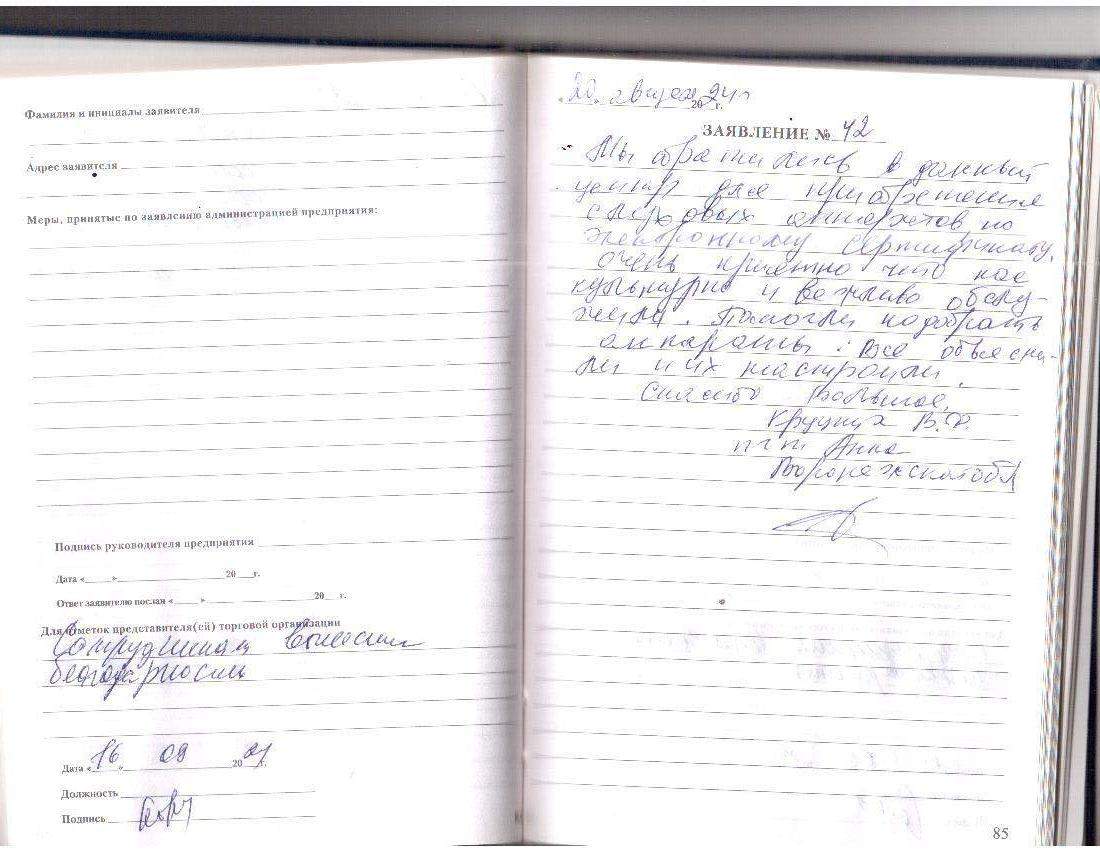 Фамилия и инициалы заявителя
Адрес заявителя
Меры, принятые по заявлению администрацией предприятия:
Подпись руководителя предприятия
Дата «___»___ 20 __ г.
Ответ заявителю послан «___»___ 20 __ г.
Для отметок представителя(ей) торговой организации
Сотрудникам вынесли
благодарности
Дата «16» 09 20 г.
Должность
Подпись
20 августа 20 24 г.
ЗАЯВЛЕНИЕ № 42
Мы обратились в данный
центр для приобретения
слуховых аппаратов по
электронному сертификату.
очень приятно что нас
культурно и вежливо обслу-
жили. Помогли подобрать
аппараты. Все объясни-
ли и их настроили.
Спасибо большое.
В.Ф.
пгт Анна
Воронежской обл
85